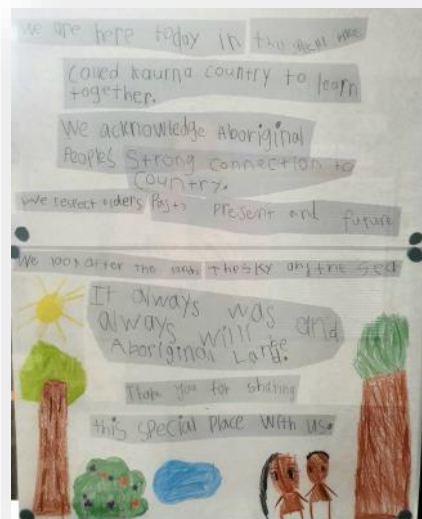 we are here today in this special place
called Kaurna country to learn
together.
We acknowledge Aboriginal
Peoples Strong connection to
country.
We respect elders Past, present and future
We look after the land, the sky and the sea
It always was and
always will be
Aboriginal Land.
Thank you for sharing
this special place with us.